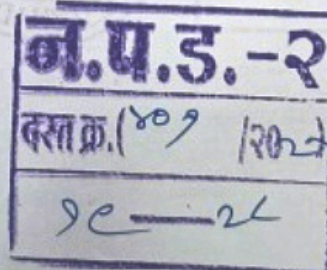 न.प.ड.-२
दस्त क्र.(४०१ /२०२२
१८ — २८